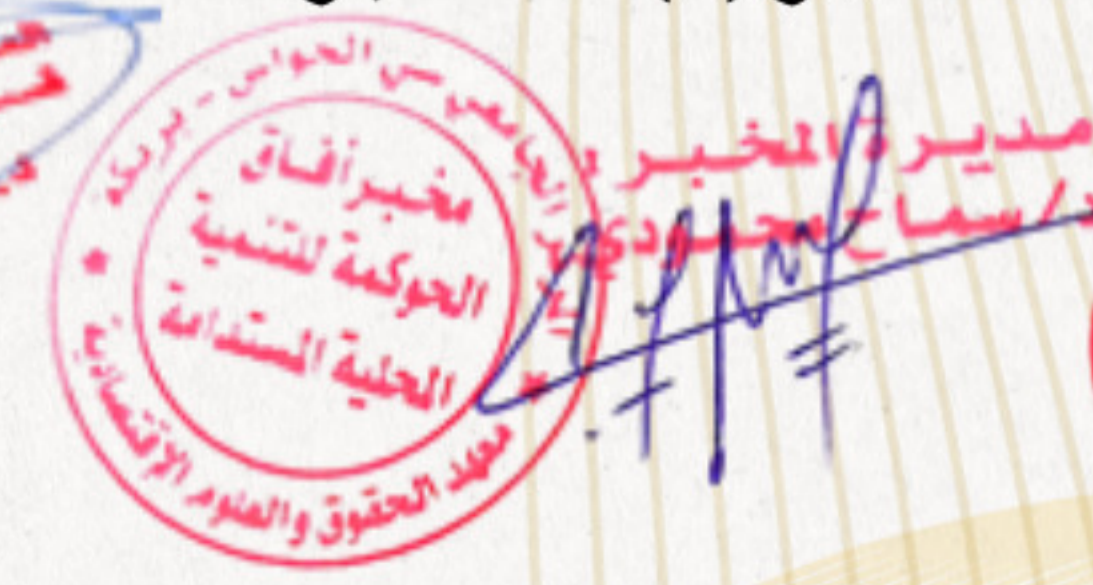 المركز الجامعي سي الحواس - بريكة
مخبر أفاق
الحوكمة للتنمية
المحلية المستدامة
معهد الحقوق والعلوم الإقتصادية
مديرة المخبر
د/سماح محمودي